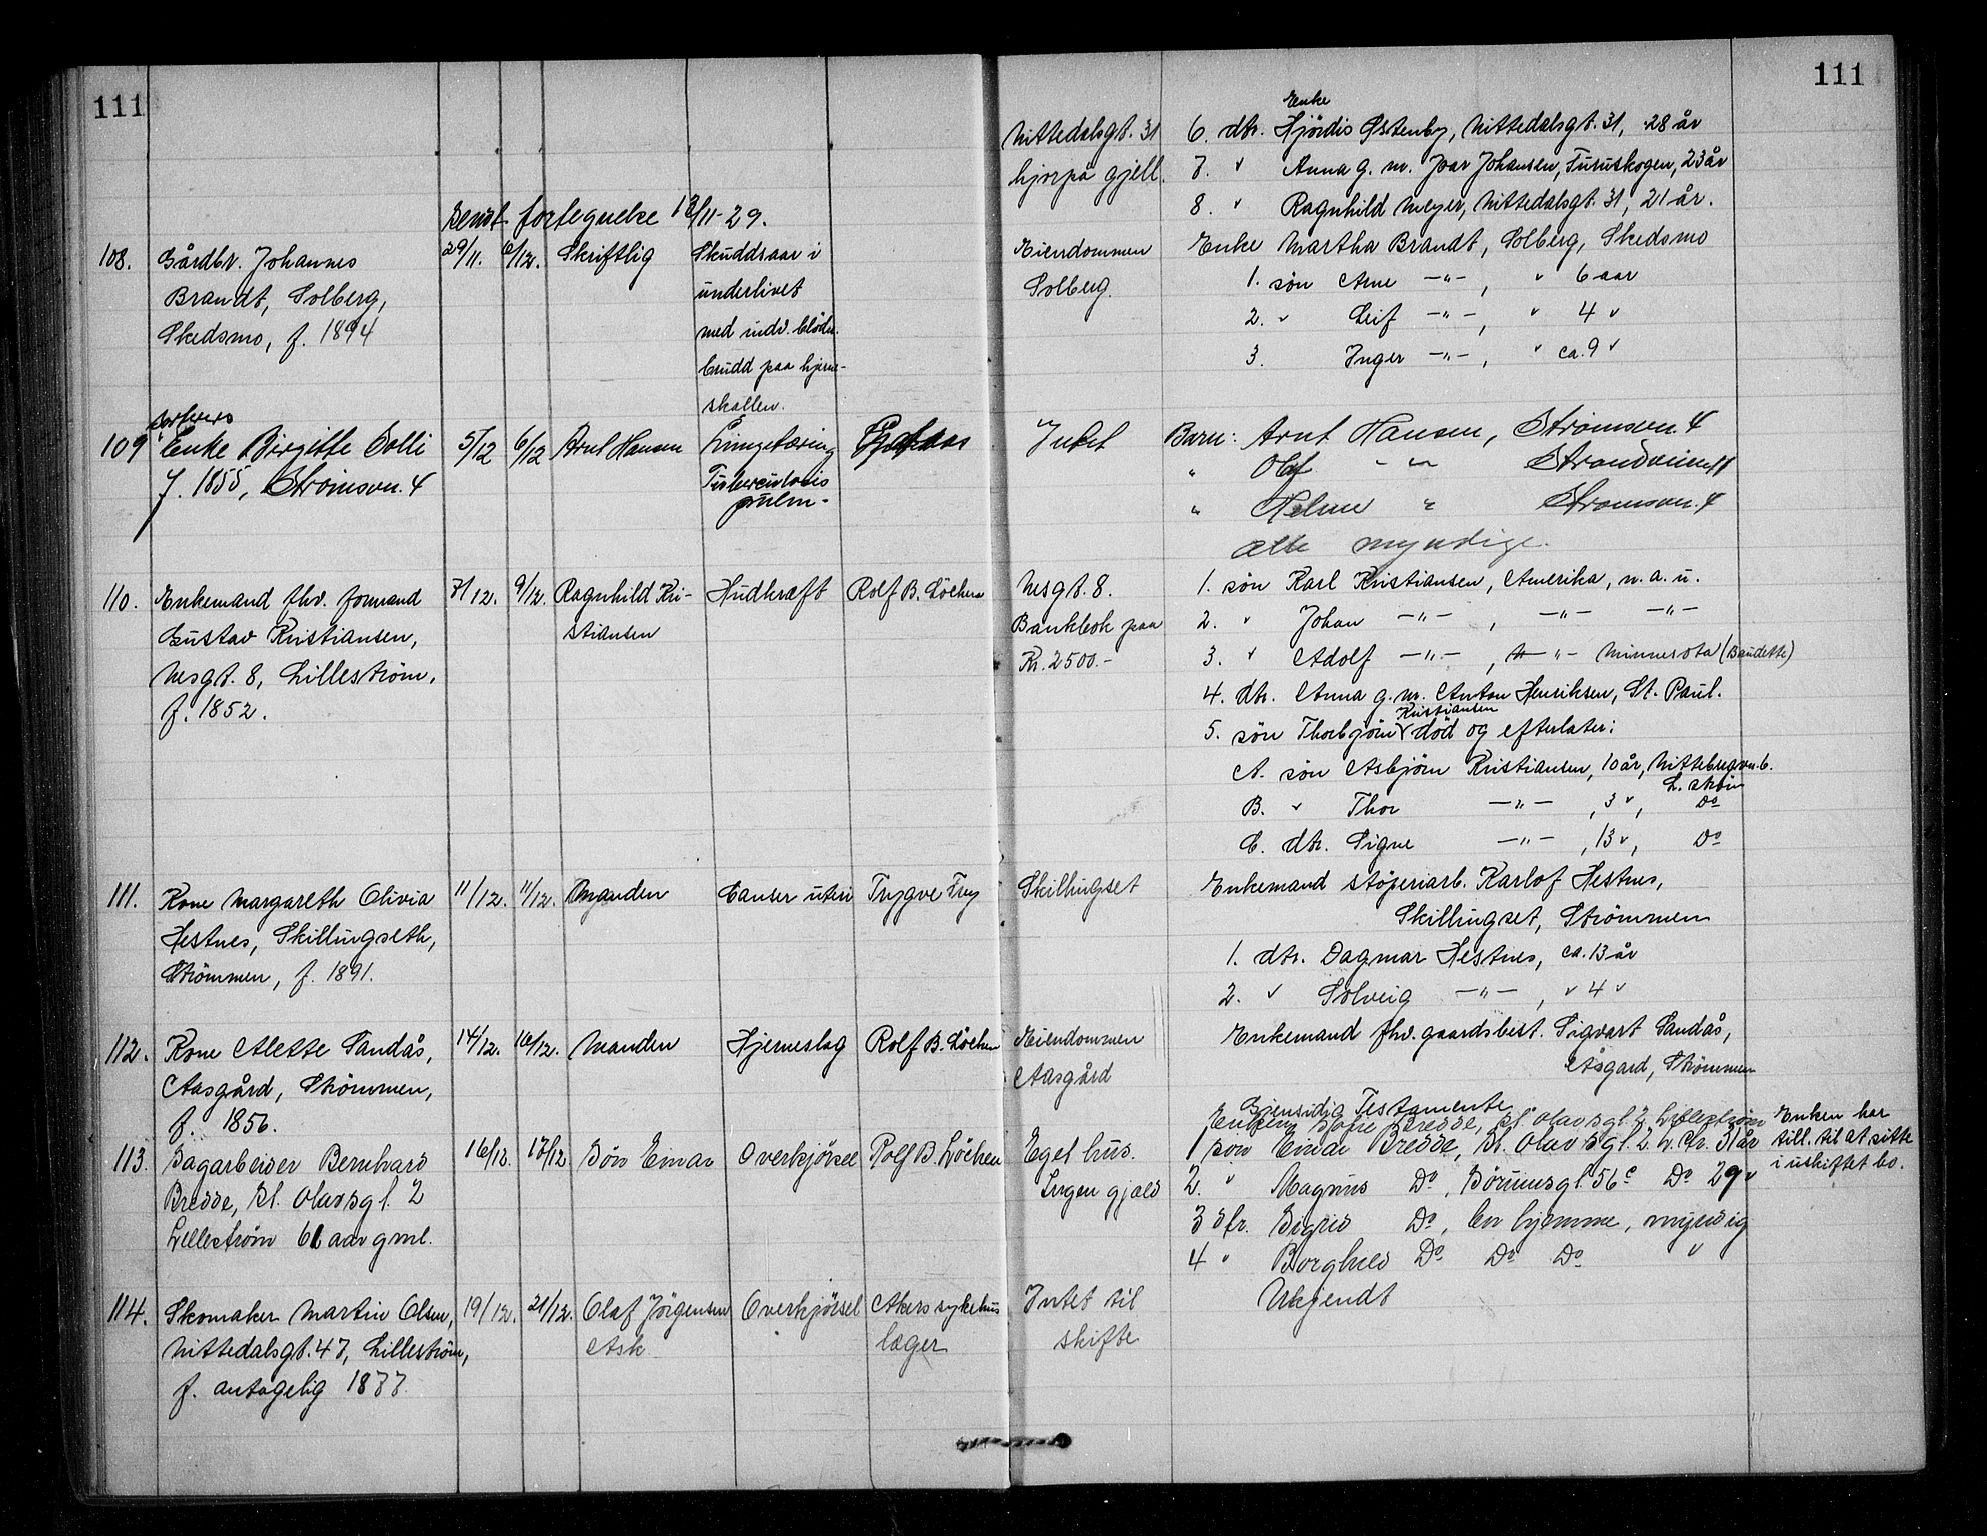 111
111
Nittedalsgt. 31
hjorpå gjell.
Enke
6. dtr. Hjördis Østenby, Nittedalsgt. 31, 28 år
7. " Anna g. m. Ivar Johansen, Furuskogen, 23 år
8. " Ragnhild Meyer, Nittedalsgt. 31, 21 år.
Sendt fortegnelse 13/11-29.
108. Gårdbr. Johannes
Brandt, Solberg,
Skedsmo, f. 1894
29/11. 6/12. Skriftlig
Skuddsaar i
underlivet
med indv. blödn.
brudd paa hjerne-
skallen.
Eiendommen
Solberg.
Enke Martha Brandt, Solberg, Skedsmo
1. sön Arne —"— , " 6 aar
2. " Leif —"— , " 4 "
3. Inger —"— , " ca. 9 "
109 Enke Birgitte Solli
f. 1855, Strømsvn. 4
5/12 6/12 Arnt Hansen
Lungetæring
Tuberculosis
pulm-
Intet
Barn: Arnt Hansen, Strømsvn. 4
" Olaf - " - Strandveien 11
" Helene " Strømsvn. 4
alle myndige.
110. Enkemand fhv. formand
Gustav Kristiansen,
Nesgt. 8, Lilleström,
f. 1852.
7/12. 9/12. Ragnhild Kri-
stiansen
Hudkræft
Rolf B. Löchen
Nesgt. 8.
Bankbok paa
Kr. 2500.-
1. sön Karl Kristiansen, Amerika, n. a. u.
2. " Johan —"— , —"— —"—
3. " Adolf —"— , —"— Minnesota (Baudette)
4. dtr. Anna g. m. Anton Henriksen, St. Paul.
Kristiansen
5. sön Thorbjörn död og efterlater:
A. sön Asbjörn Kristiansen, 10 år, Nittebergvn. 6.
L. ström
B. " Thor —"— , 3 ", Do
C. dtr. Signe —"— , 13 ", Do
111. Kone Margareth Olivia
Hestnes, Skillingseth,
Strömmen, f. 1891.
11/12. 11/12. Manden
Canser uteri
Trygve Fry
Skillingset
Enkemand stöperiarb. Karlof Hestnes,
Skillingset, Strömmen
1. dtr. Dagmar Hestnes, ca. 13 år
2. " Solveig —"— , " 4 "
112. Kone Alette Sandås,
Aasgård, Strömmen,
f. 1856.
14/12. 16/12. Manden
Hjerneslag
Rolf B. Löchen
Eiendommen
Aasgård
Enkemand fhv. gaardsbest. Sigvart Sandås,
Åsgard, Strömmen
Gjensidig Testamente
113. Sagarbeider Bernhard
Bredde, St. Olavsgt. 2
Lillestrøm 61 aar gml.
16/12. 17/12 Sön Einar
Overkjörsel
Rolf B. Löchen
Eget hus.
Ingen gjæld
Enken Sofie Bredde, St. Olavsgt. 2 Lilleström
1 søn Einar Bredde, St. Olavsgt. 2 L.str. 31 år
2. " Magnus Do, Börumsgt 56 c Do 29 "
3 dtr. Sigrid Do, bor hjemme, myndig
4 " Borghild Do Do Do "
Enken har
till. til at sitte
i uskiftet bo.
114. Skomaker Martin Olsen,
Nittedalsgt. 47, Lilleström,
f. antagelig 1877.
19/12. 21/12. Olaf Jörgensen
Ask
Overkjörsel
Akers sykehus
læger
Intet til
skifte
Ukjendt